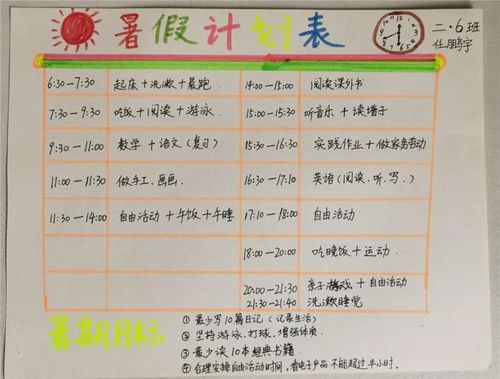 暑假计划表
二·6班
任鹏宇
6:30—7:30 起床+洗漱+晨跑
14:00—15:00 阅读课外书
7:30—9:30 吃饭+阅读+游泳
15:00—15:30 听音乐+读播子
9:30—11:00 数学+语文(复习)
15:30—16:30 实践作业+做家务劳动
11:00—11:30 做手工、画画.
16:30—17:10 英语(阅读、听、写.)
11:30—14:00 自由活动+午饭+午睡
17:10—18:00 自由活动
18:00—20:00 吃晚饭+运动.
20:00—21:30 亲子游戏+自由活动
21:30—21:40 洗漱睡觉
暑期目标
① 最少写10篇日记(记录生活)
② 坚持游泳、打球、增强体质.
③ 最少读10本经典书籍
④ 合理安排自由活动时间,看电子产品不能超过半小时.